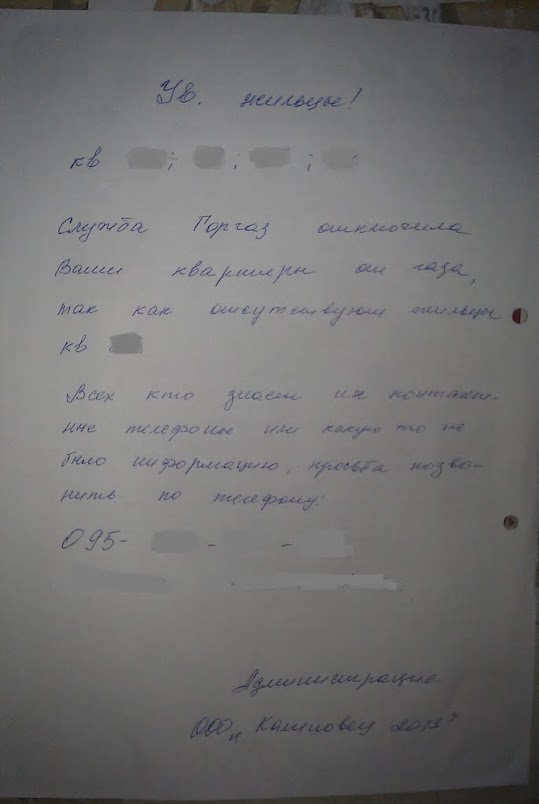 Ув. жильцы!
кв ; ; ;
Служба Горгаз отключила
Ваши квартиры от газа,
так как отсутствуют жильцы
кв
Всех кто знает их контакт-
ные телефоны или какую то не
было информацию, просьба позво-
нить по телефону:
095- - -
Администрация
ООО "